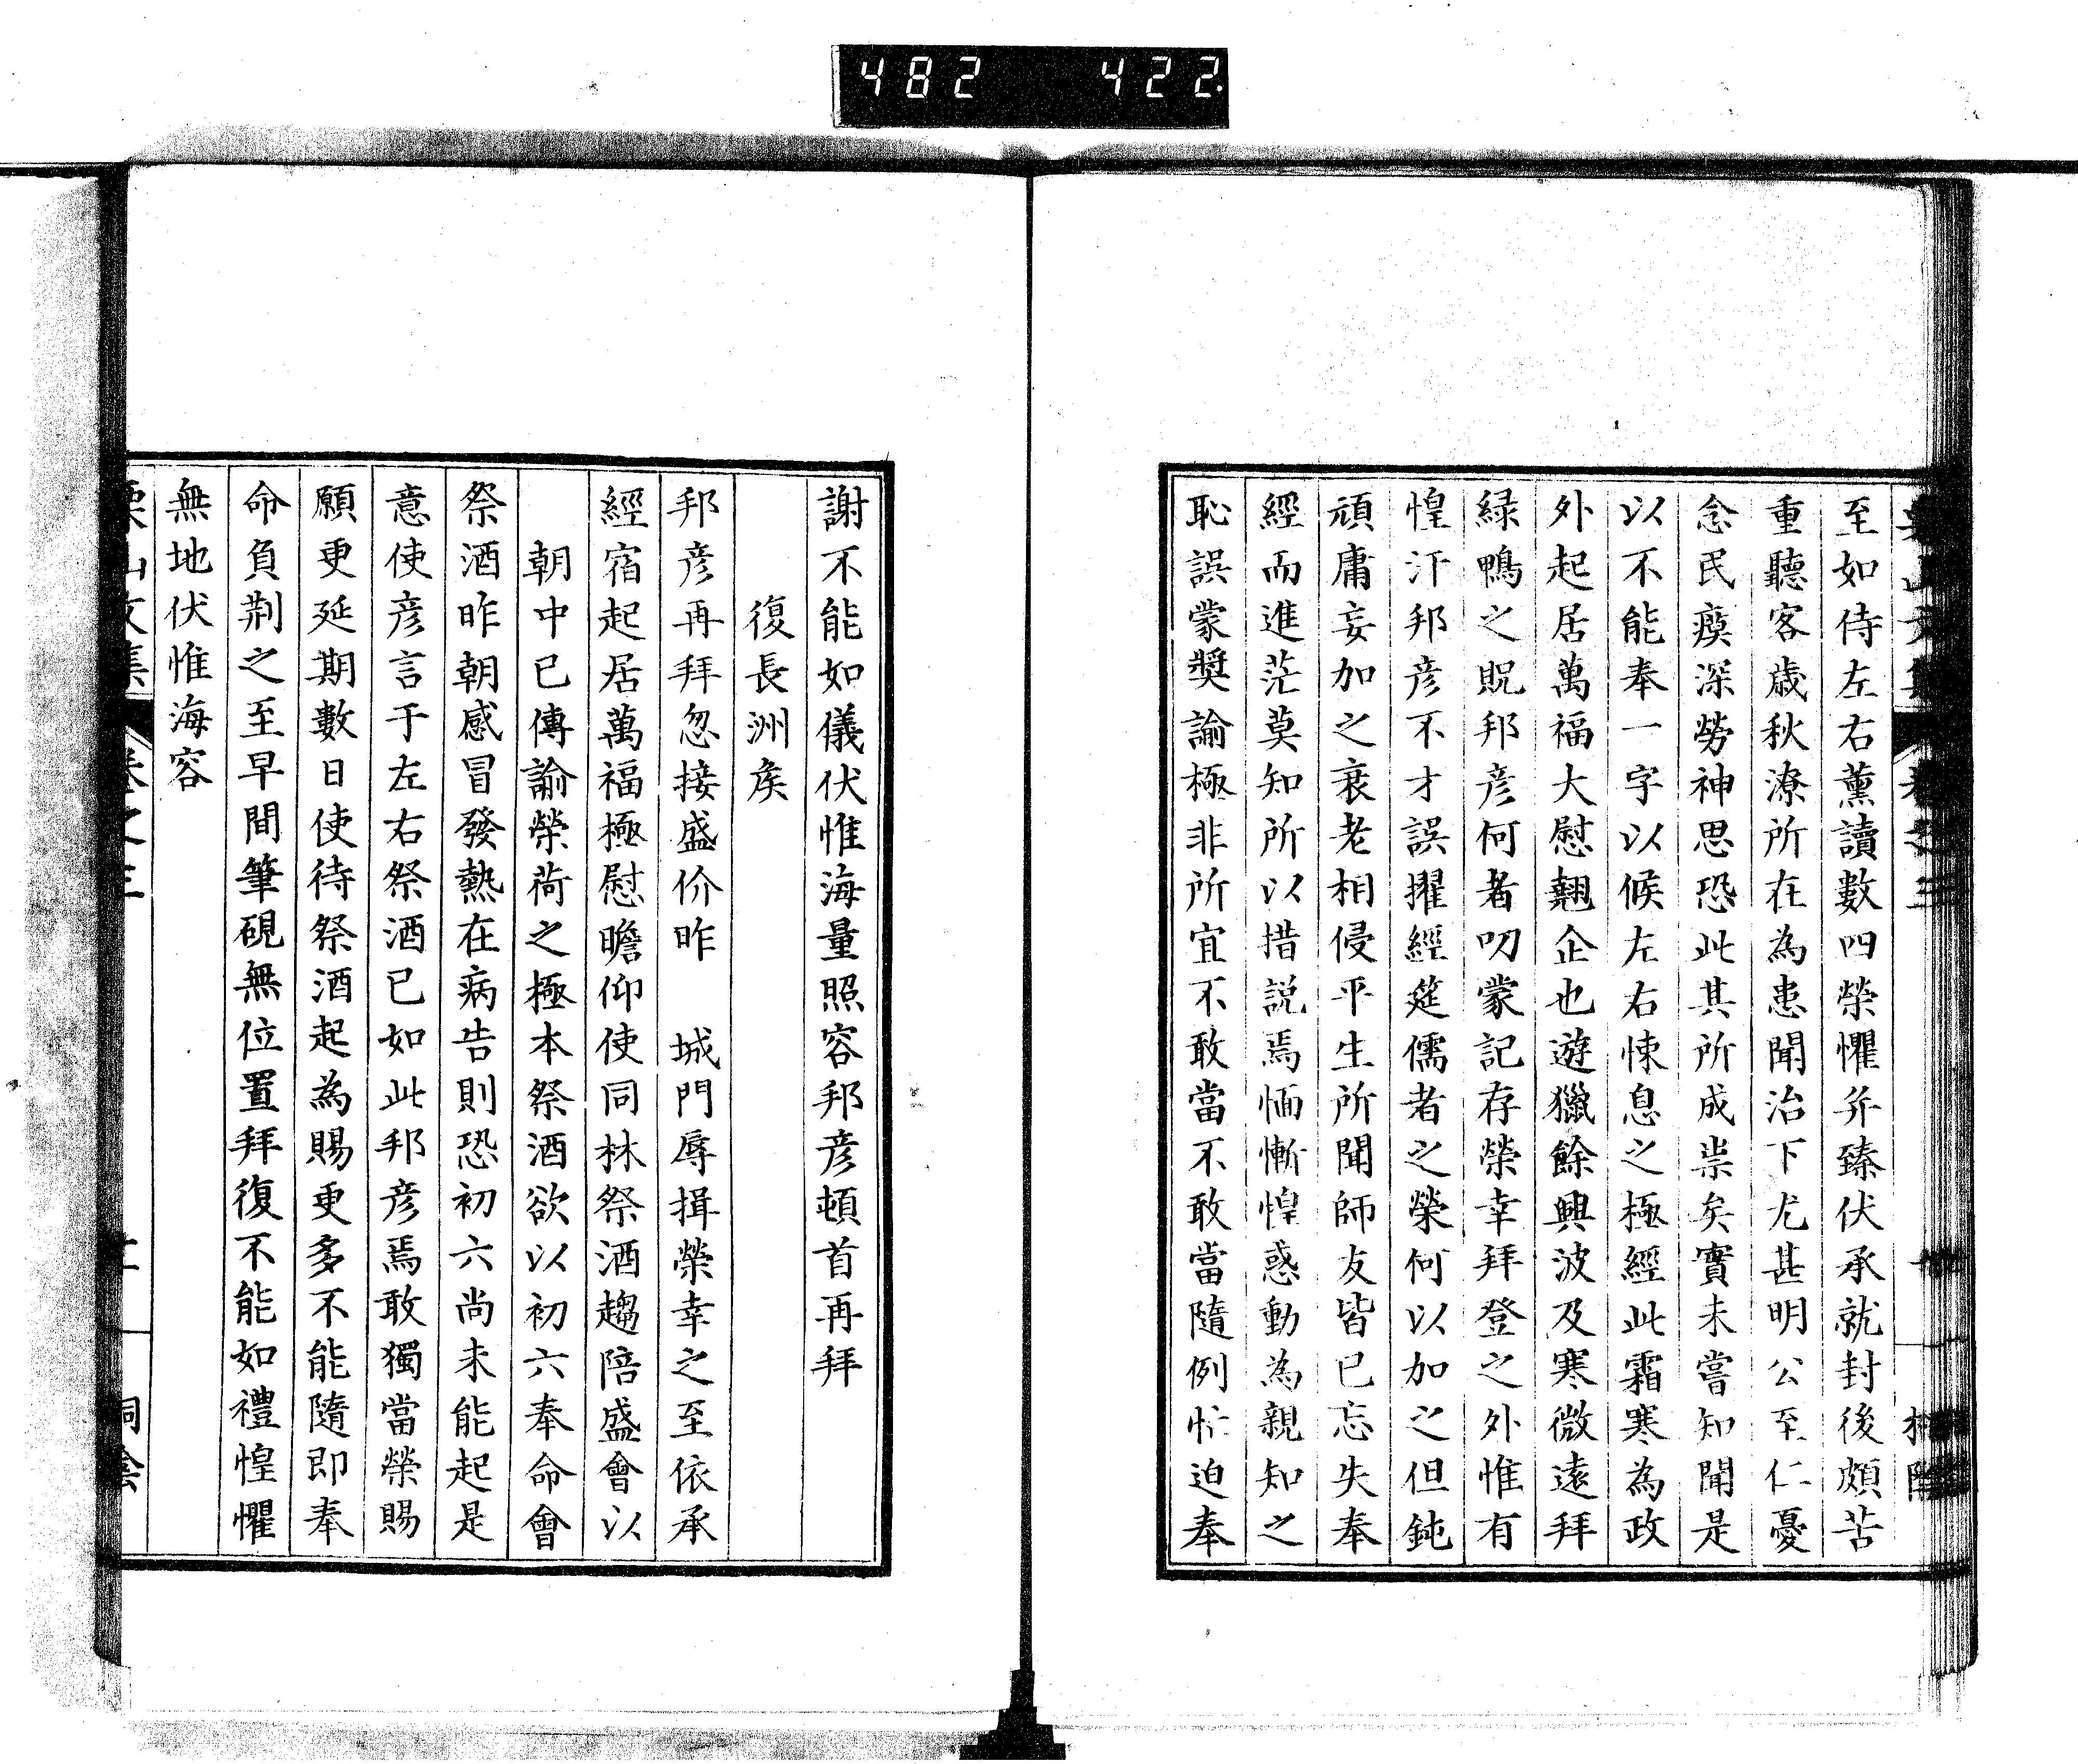 482 422.
至如侍左右薰讀數四榮懼并臻伏承就封後頗苦
重聽客歳秋潦所在為患聞治下尤甚明公至仁憂
念民瘼深勞神思恐此其所成祟矣實未嘗知聞是
以不能奉一字以候左右悚息之極經此霜寒為政
外起居萬福大慰翹企也遊獵餘興波及寒微遠拜
緑鴨之貺邦彦何者叨蒙記存榮幸拜登之外惟有
惶汗邦彦不才誤擢經筵儒者之榮何以加之但鈍
頑庸妄加之衰老相侵平生所聞師友皆已忘失奉
經而進茫莫知所以措説焉恧慚惶惑動為親知之
恥誤蒙奬諭極非所宜不敢當不敢當隨例忙迫奉
謝不能如儀伏惟海量照容邦彦頓首再拜
復長洲矦
邦彦再拜忽接盛价昨 城門辱揖榮幸之至依承
經宿起居萬福極慰瞻仰使同林祭酒趨陪盛會以
朝中已傳諭榮荷之極本祭酒欲以初六奉命會
祭酒昨朝感冒發熱在病告則恐初六尚未能起是
意使彦言于左右祭酒已如此邦彦焉敢獨當榮賜
願更延期數日使待祭酒起為賜更多不能隨即奉
命負荆之至早間筆硯無位置拜復不能如禮惶懼
無地伏惟海容
栗山文集 卷之三